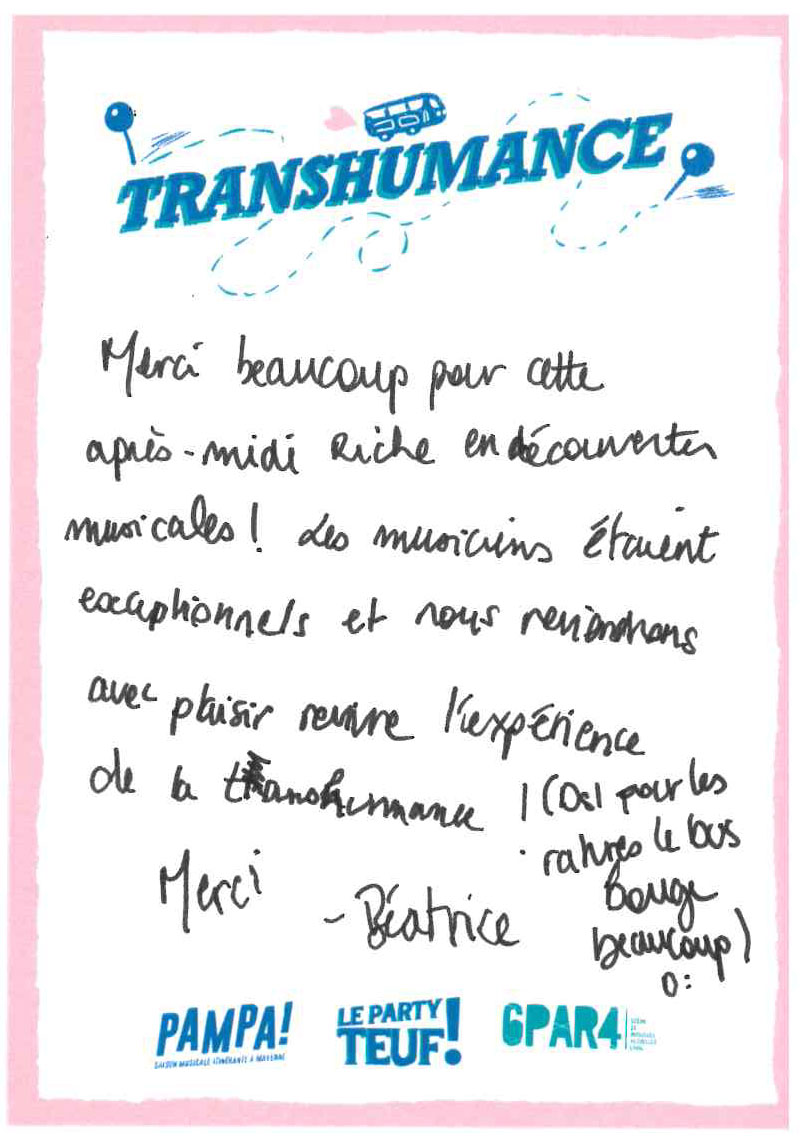 TRANSHUMANCE
Merci beaucoup pour cette
après-midi Riche en découvertes
musicales ! Les musiciens étaient
exceptionnels et nous reviendrons
avec plaisir revivre l'expérience
de la transhumance ! (Dsl pour les
ratures le bus
bouge
beaucoup)
o:
Merci
- Béatrice
PAMPA!
SAISON MUSICALE ITINÉRANTE À MAYENNE
LE PARTY
TEUF!
6PAR4